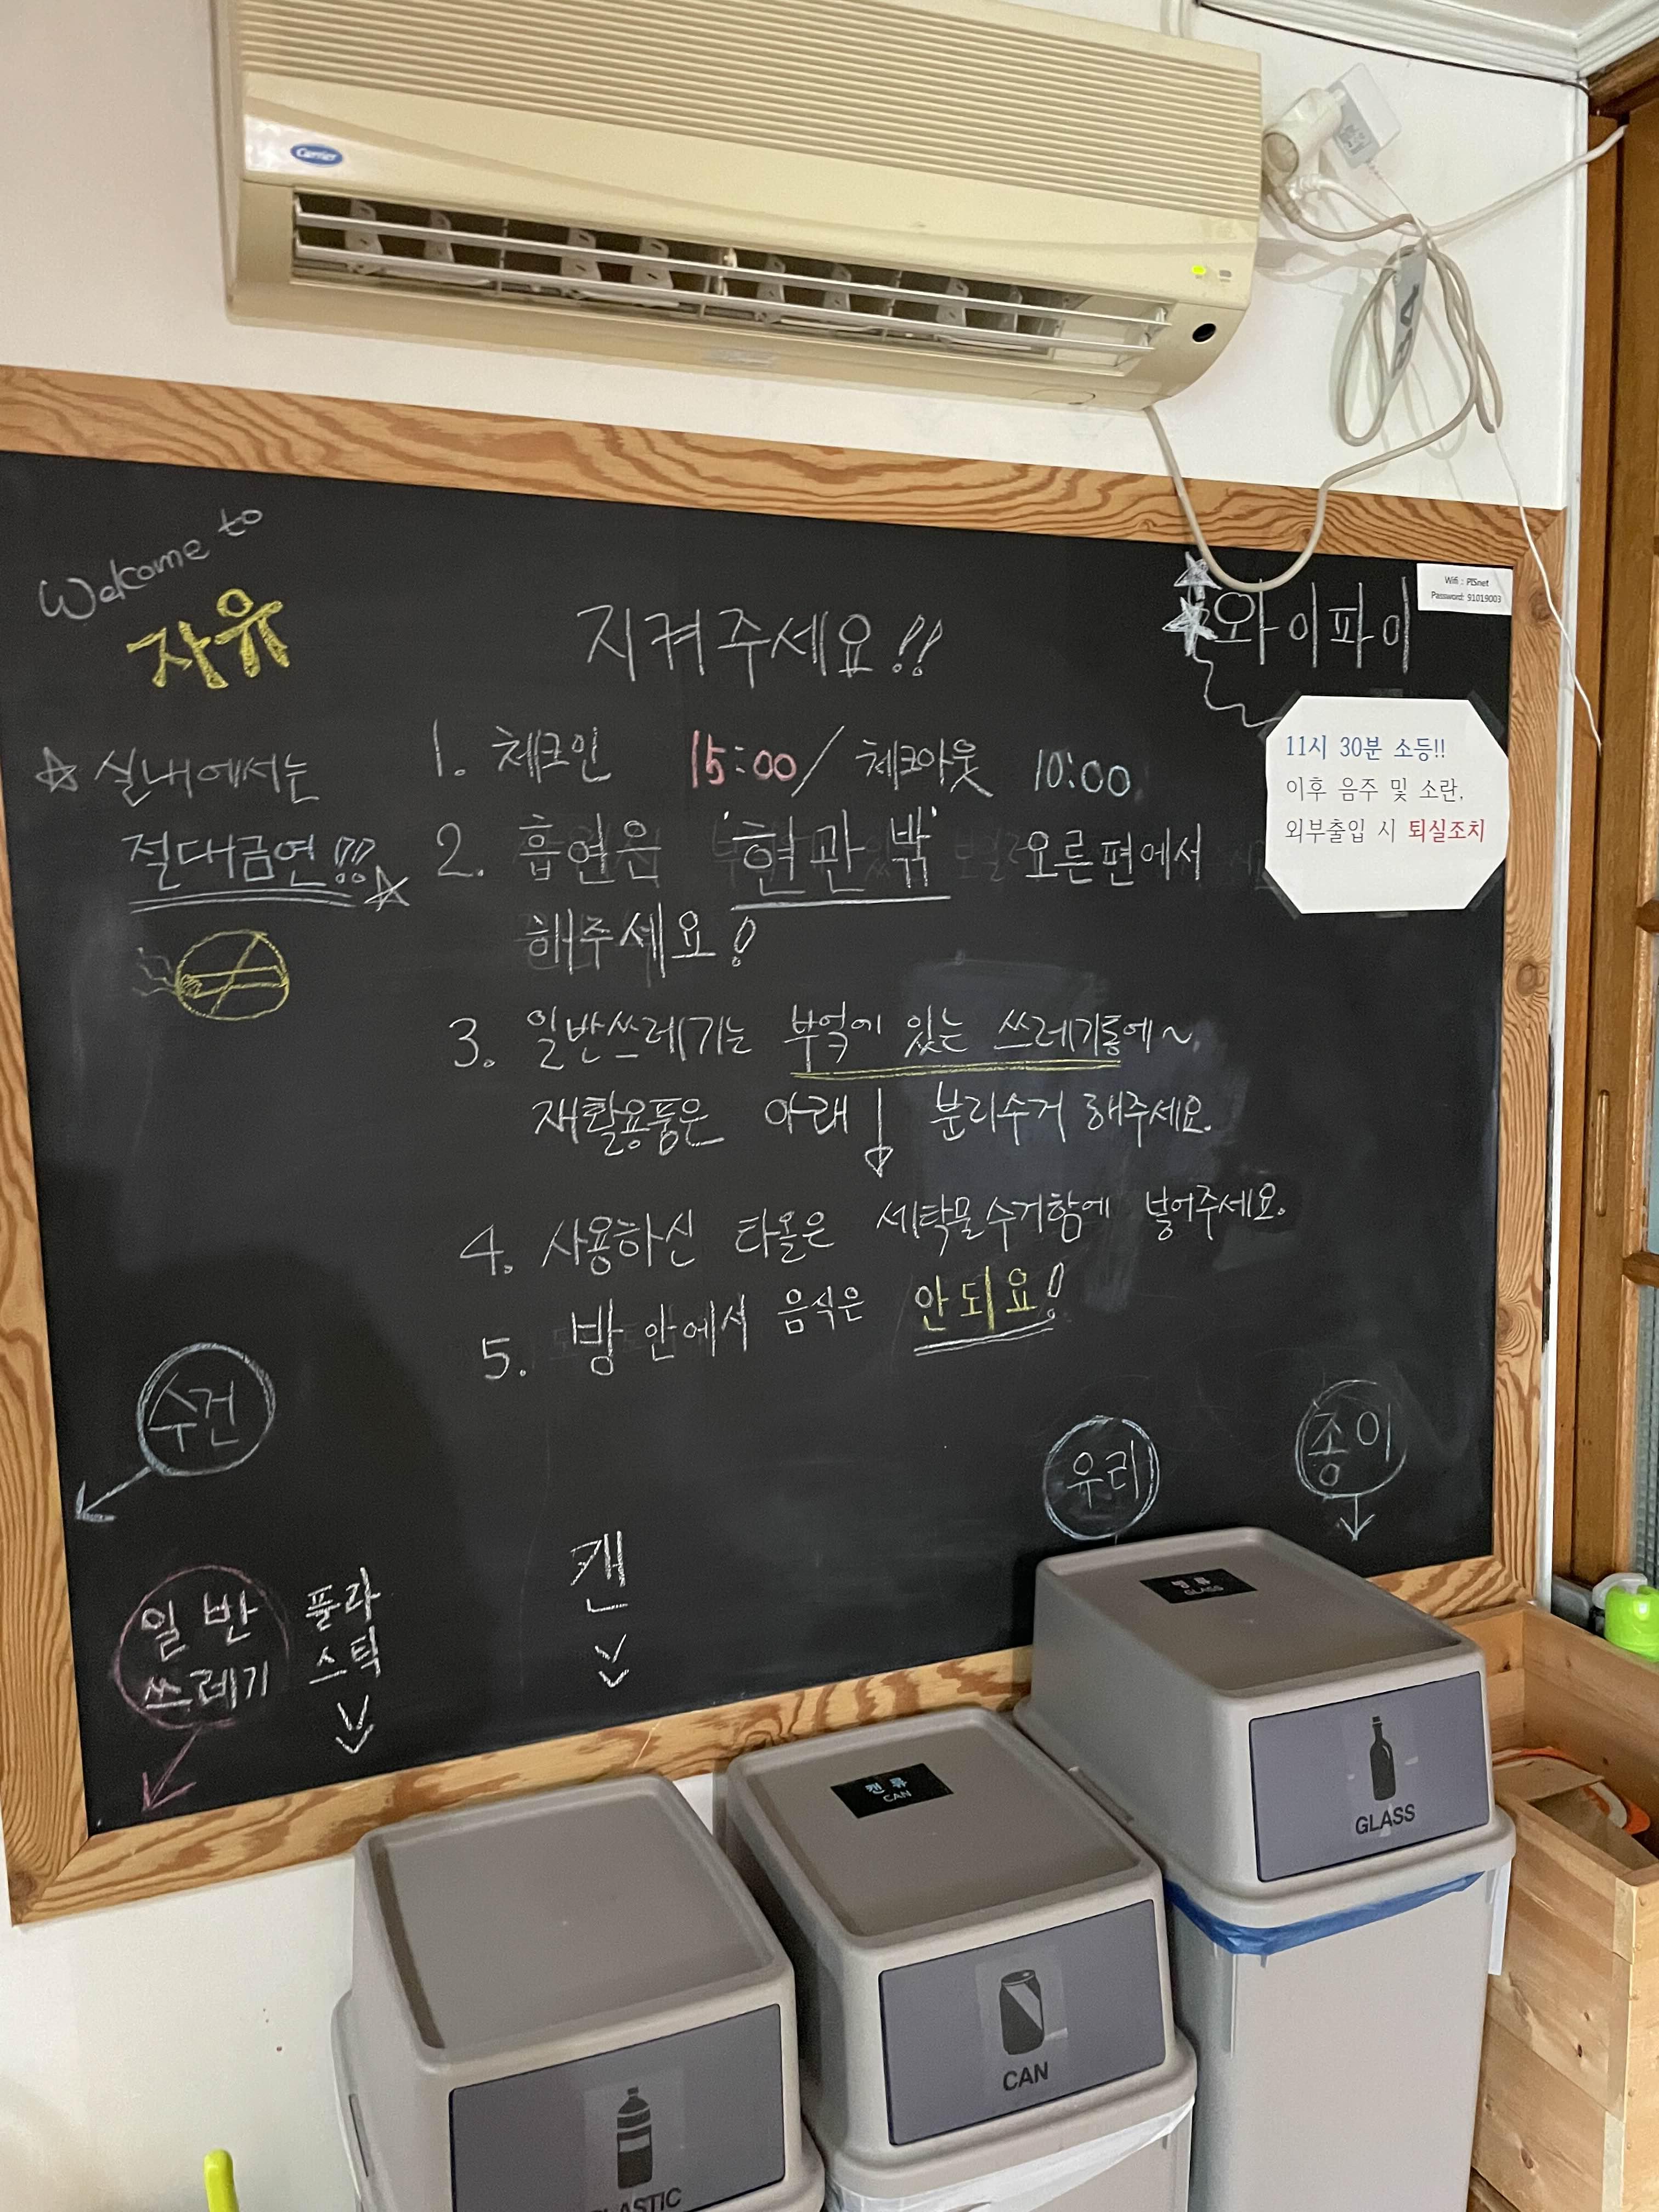 Carrier
Welcome to
자유
☆ 실내에서는
절대금연!!! ☆
지켜주세요!!
1. 체크인 15:00 / 체크아웃 10:00
2. 흡연은 '현관 밖' 오른편에서
해주세요!
3. 일반쓰레기는 부엌에 있는 쓰레기통에~
재활용품은 아래↓ 분리수거 해주세요.
4. 사용하신 타올은 세탁물수거함에 넣어주세요.
5. 방 안에서 음식은 안되요!
와이파이
Wifi : PISnet
Password: 91019003
11시 30분 소등!!
이후 음주 및 소란,
외부출입 시 퇴실조치
수건
일반
쓰레기
플라
스틱
캔
유리
종이
병류
GLASS
GLASS
캔류
CAN
CAN
PLASTIC